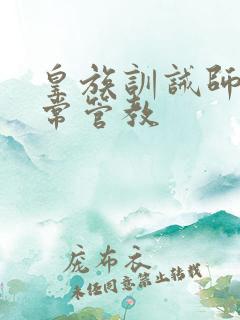 皇族訓誡師
常管教
庞布衣
未经同意禁止转载